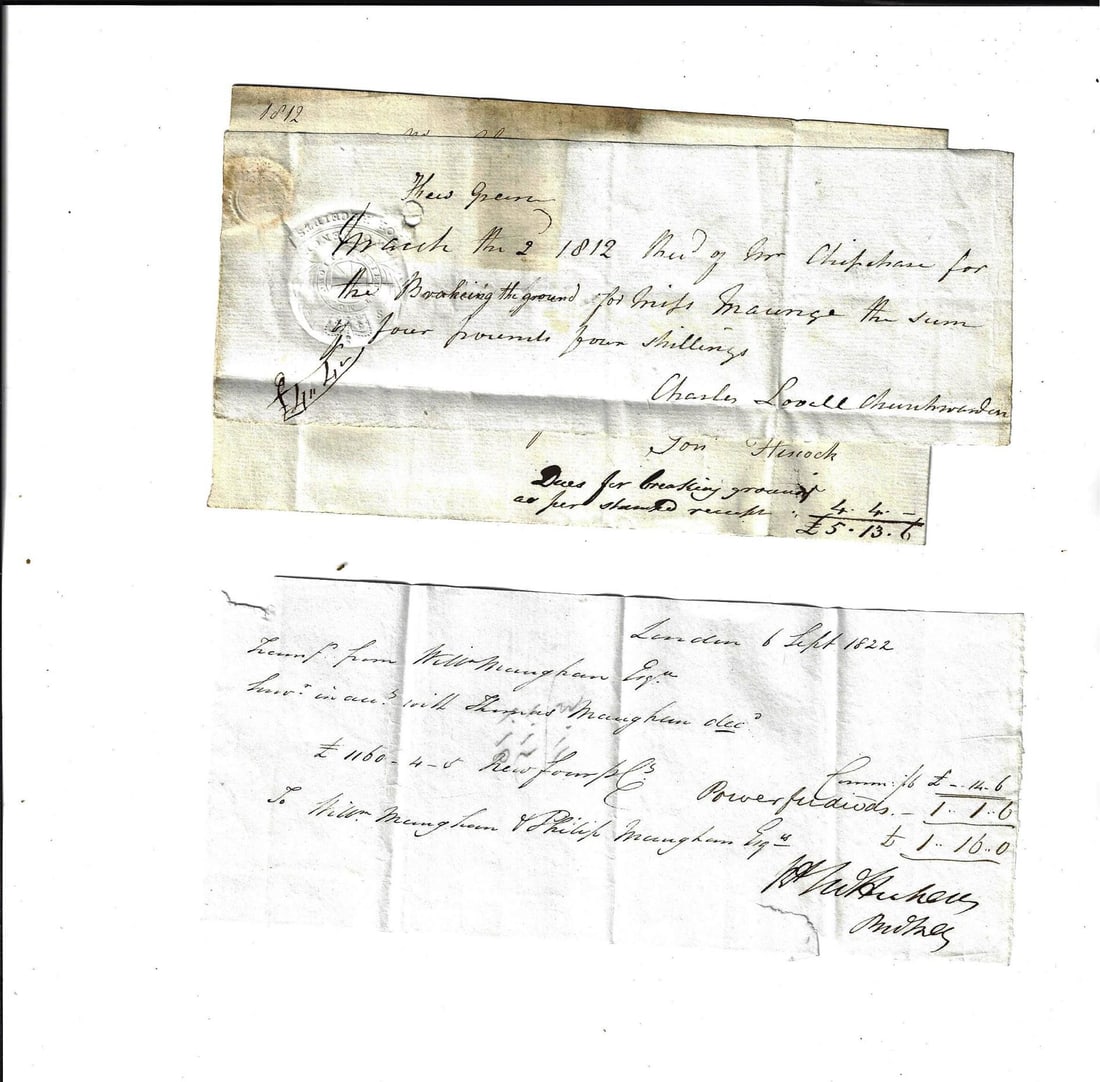 1812
Kew Green
March the 2 1812 Recd of Mr Chipchase for
the Breaking the ground for Miss Maunge the sum
of four pounds four shillings
£4" 4s
Charles Lovell Churchwarden
Hiscock
Dues for breaking ground
as per stamped receipt . 4. 4. –
£5. 13. 6
London 6 Sept 1822
Transfr from Willm Maughan Esqr
Survr in acct with Thomas Maughan decd
£1160-4-5 New four p Cts
Comm: £ -. 14. 6
Power for divds. – 1. 1. 6
To Willm Maughan & Philip Maughan Esqrs
£ 1.. 16.. 0